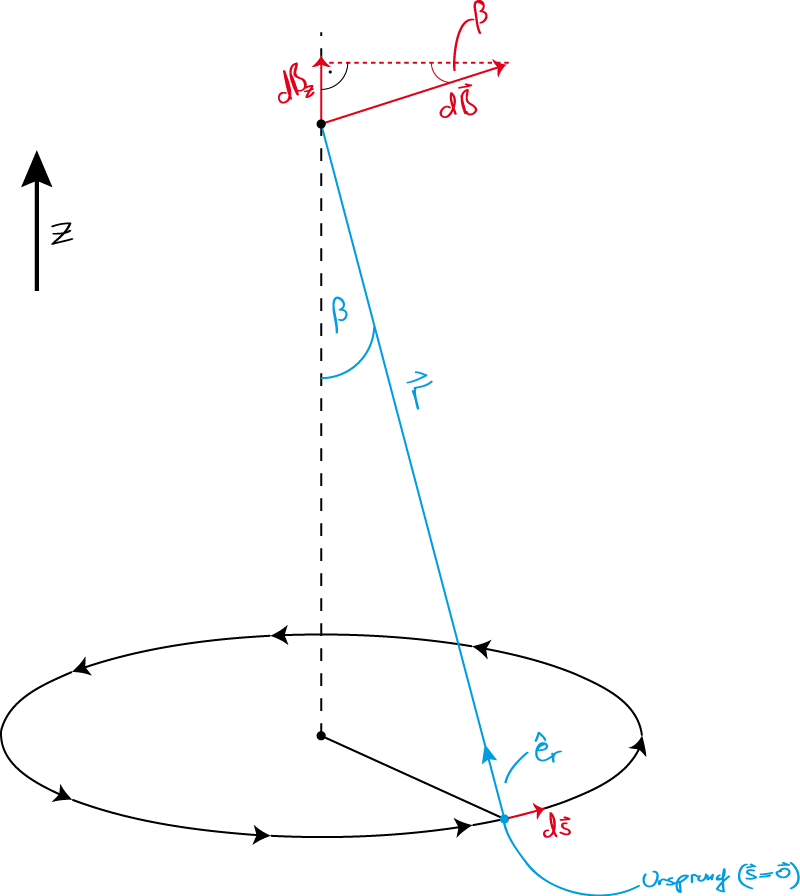 β
dB_z
dB⃗
z
β
r⃗
ê_r
ds⃗
Ursprung (s⃗=0⃗)